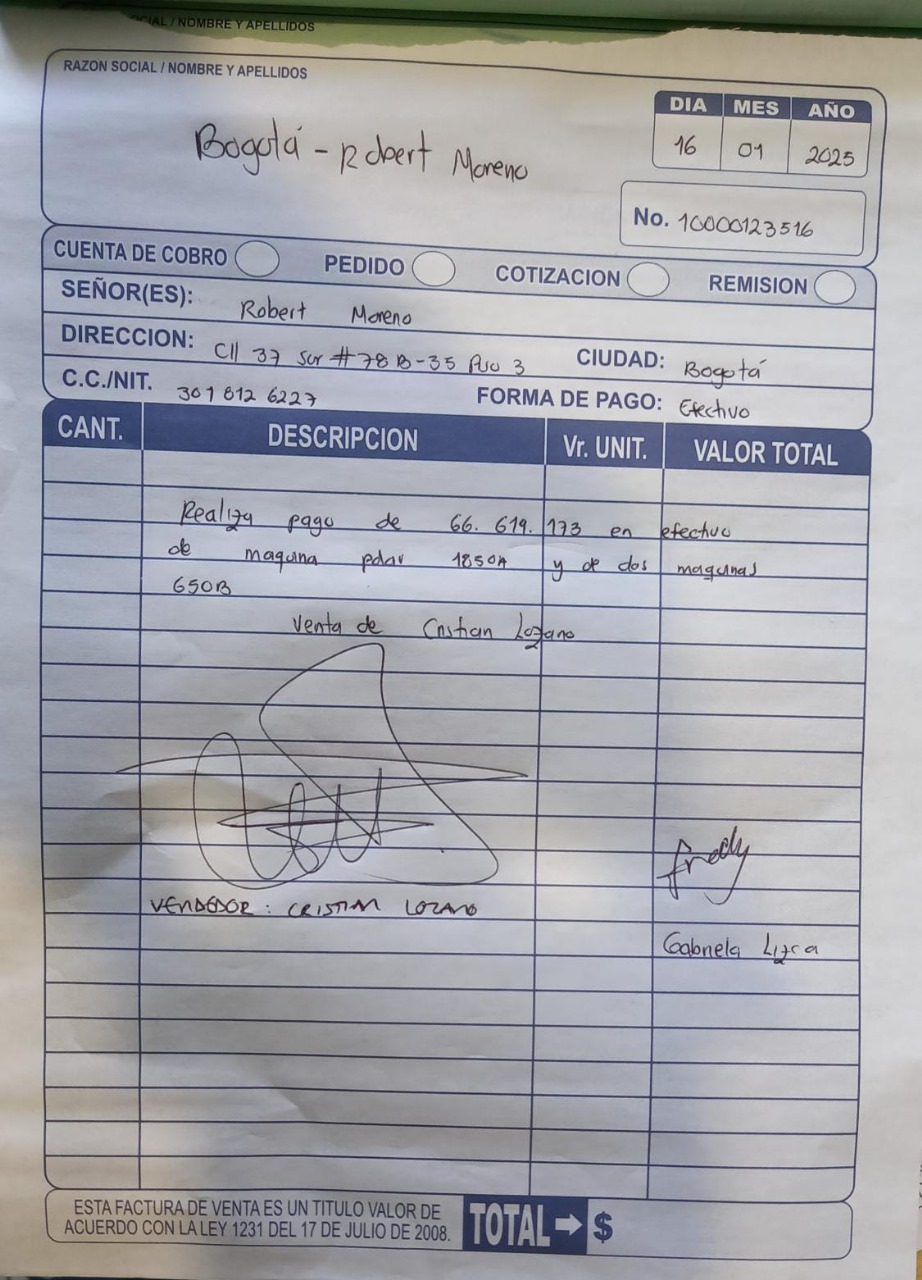 CIAL / NOMBRE Y APELLIDOS
RAZON SOCIAL / NOMBRE Y APELLIDOS
DIA MES AÑO
16 01 2025
Bogotá - Robert Moreno
No. 10000123516
CUENTA DE COBRO PEDIDO COTIZACION REMISION
SEÑOR(ES): Robert Moreno
DIRECCION: Cll 37 sur # 78 B - 35 Piso 3 CIUDAD: Bogotá
C.C./NIT. 301 812 6227 FORMA DE PAGO: Efectivo
CANT. DESCRIPCION Vr. UNIT. VALOR TOTAL
Realiza pago de 66. 619. 173 en efectivo
de maquina pdav 1850A y de dos maquinas
650B
Venta de Cristian Lozano
fredy
VENDEDOR : CRISTIAN LOZANO
Gabriela Lizca
ESTA FACTURA DE VENTA ES UN TITULO VALOR DE
ACUERDO CON LA LEY 1231 DEL 17 DE JULIO DE 2008.
TOTAL → $